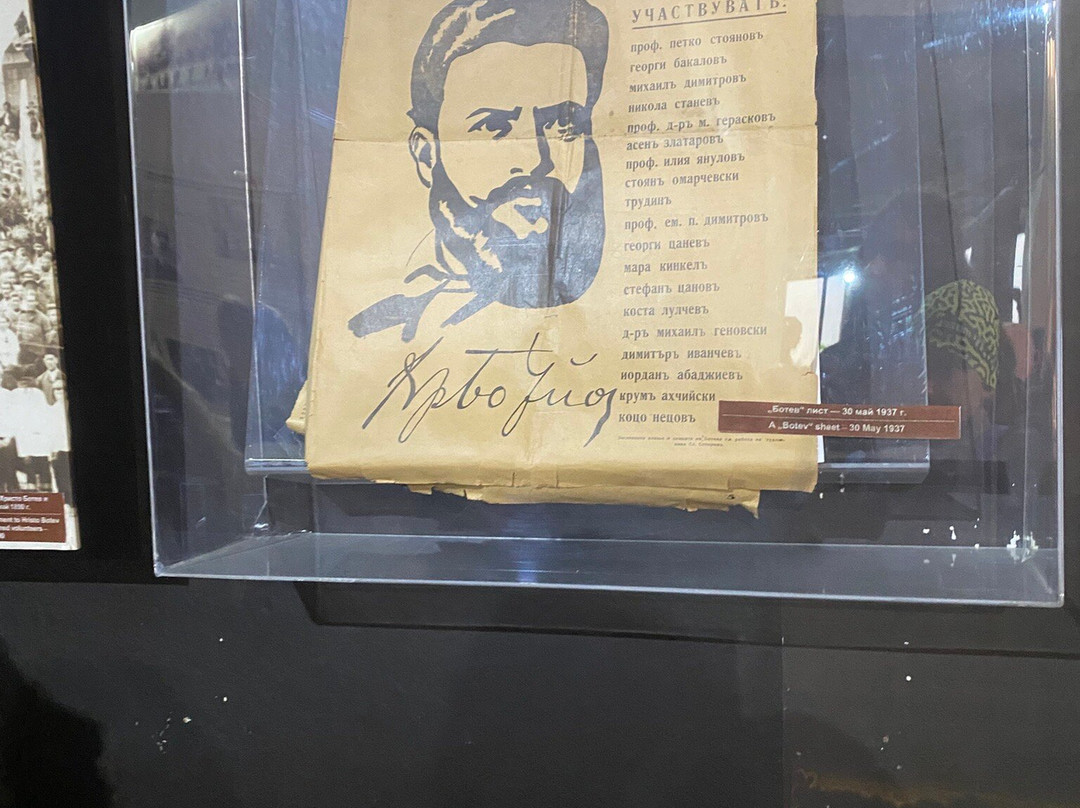 УЧАСТВУВАТЪ:
проф. петко стояновъ
георги бакаловъ
михаилъ димитровъ
никола станевъ
проф. д-ръ м. герасковъ
асенъ златаровъ
проф. илия януловъ
стоянъ омарчевски
трудинъ
проф. ем. п. димитровъ
георги цаневъ
мара кинкелъ
стефанъ цановъ
коста лулчевъ
д-ръ михаилъ геновски
димитъръ иванчевъ
иорданъ абаджиевъ
крумъ ахчийски
коцо нецовъ
„Ботев“ лист — 30 май 1937 г.
A „Botev“ sheet – 30 May 1937
Христо Ботев и
май 1890 г.
ment to Hristo Botev
volunteers –